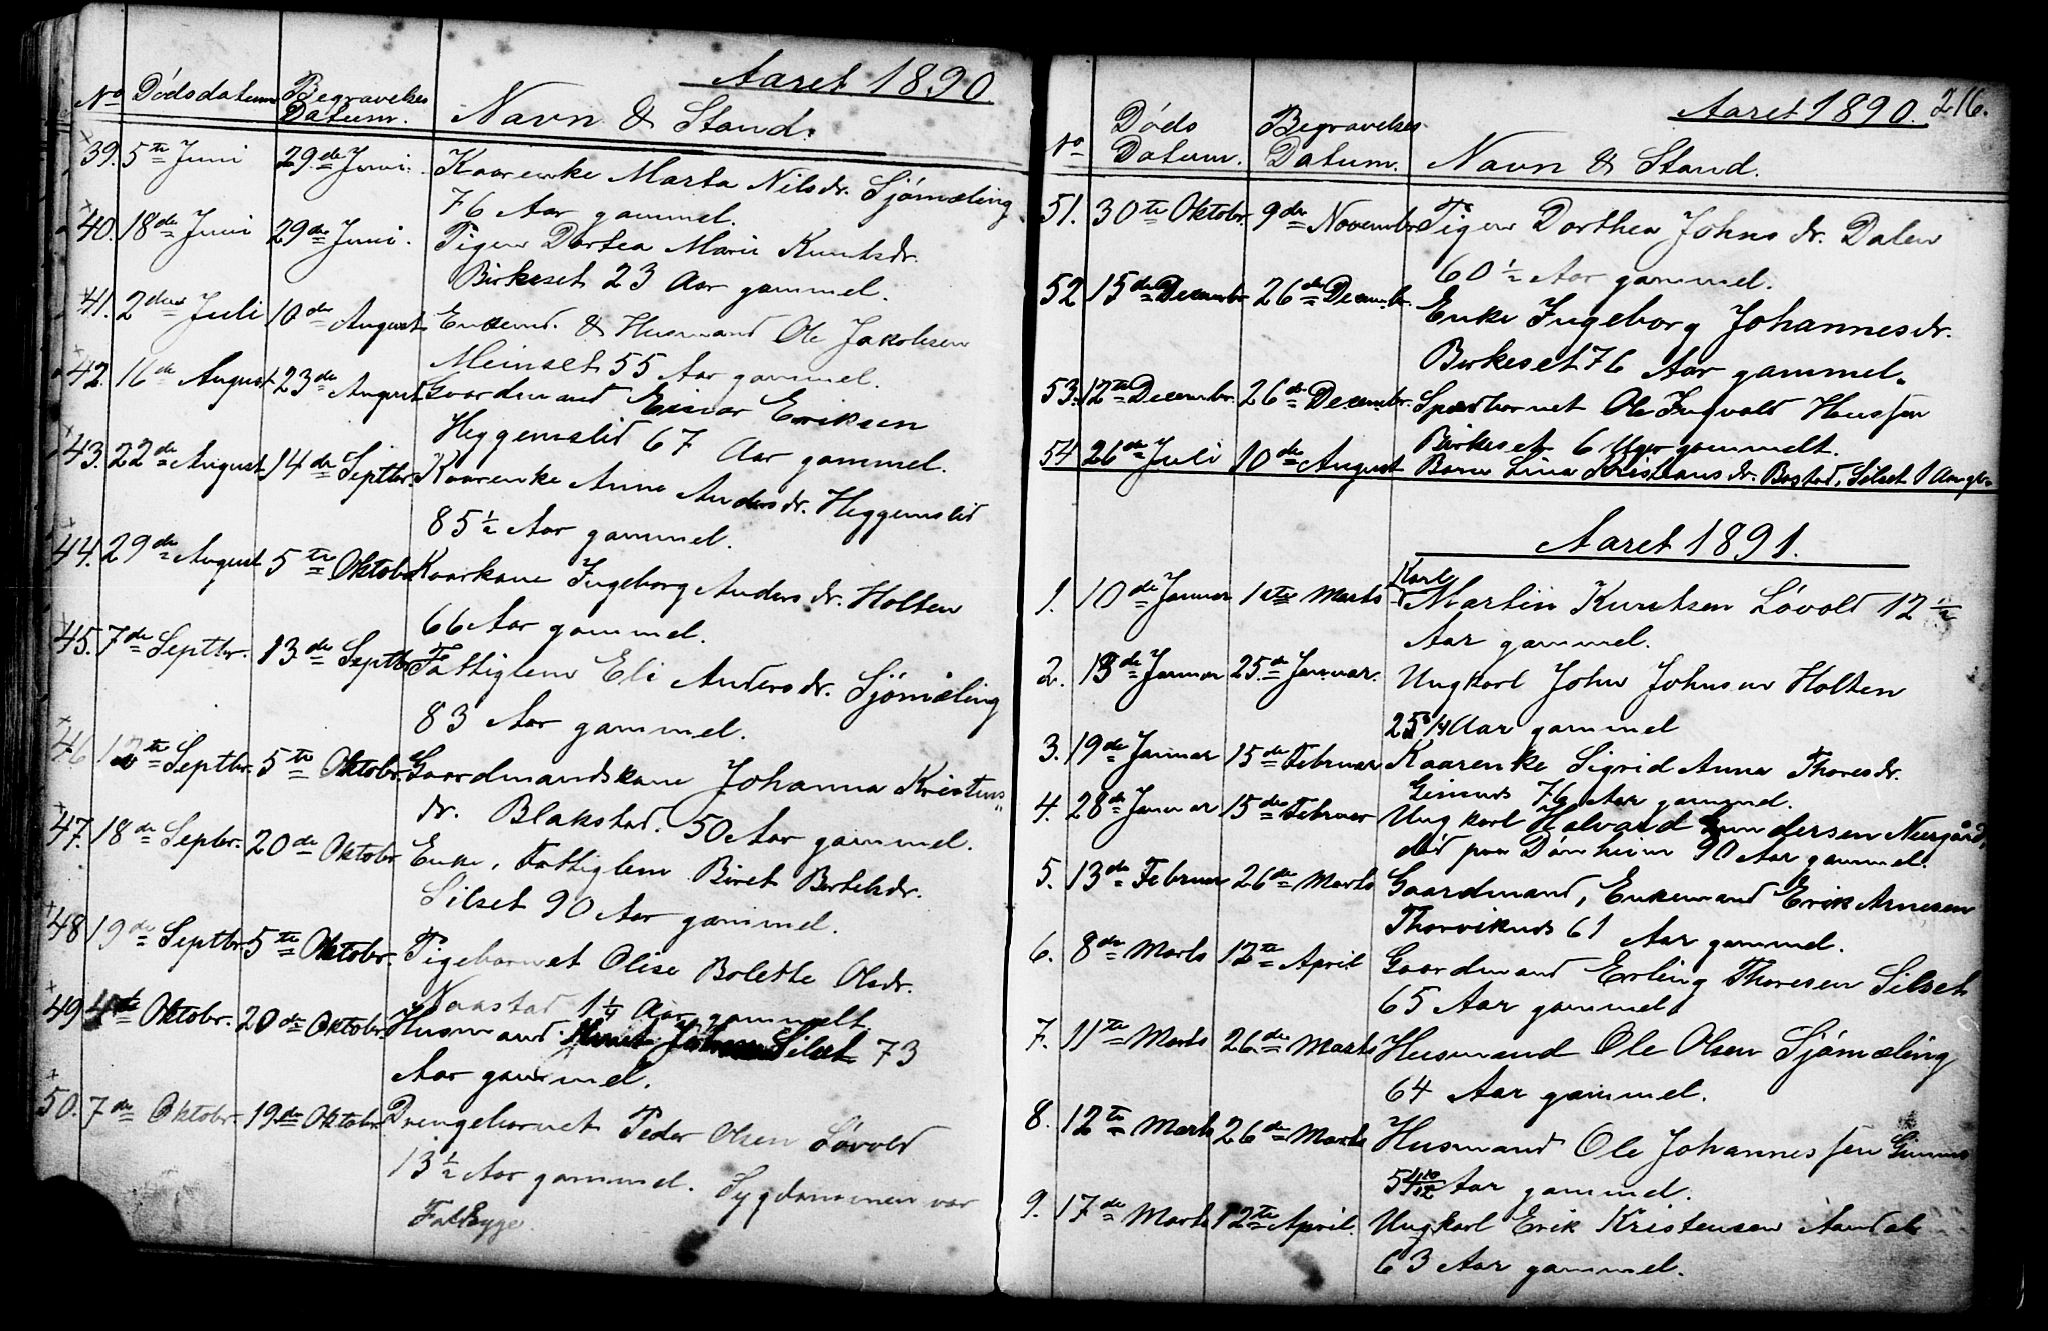 Aaret 1890.
No Dödsdatum Begravelses Datum. Navn & Stand.
39. 5te Juni 29de Juni. Kaarenke Marta Nilsdr. Sjömæling
76 Aar gammel.
40. 18de Juni 29de Juni. Pigen Dortea Marie Knutsdr.
Birkeset 23 Aar gammel.
41. 2den Juli 10de August Enkemd. & Husmand Ole Jakobsen
Meinset 55 Aar gammel.
42. 16de August 23de August Gaardmand Einar Eriksen
Heggemslid 67 Aar gammel.
43. 22de August 14de Septbr. Kaarenke Anne Andersdr. Heggemslid
85 1/2 Aar gammel.
44. 29de August 5te Oktobr Kaarkone Ingeborg Andersdr. Holten
66 Aar gammel.
45. 7de Septbr. 13de Septbr Fattiglem Eli Andersdr. Sjömæling
83 Aar gammel.
46 12te Septbr. 5te Oktobr. Gaardmandskone Johanna Kristens
dr. Blakstad. 50 Aar gammel.
47. 18de Septbr. 20de Oktobr Enke, Fattiglem Beret Bertelsdr.
Silset 90 Aar gammel.
48 19de Septbr. 5te Oktobr. Pigebarnet Olise Bolette Olsdr.
Naastad 1 1/4 Aar gammelt.
49 4de Oktobr. 20de Oktobr. Husmand Silset 73
Aar gammel.
50. 7de Oktobr. 19de Oktobr. Drengebarnet Peder Olsen Lövold
13 1/2 Aar gammel. Sygdommen var
Faldsyge.
Aaret 1890. 216.
No Döds Datum. Begravelses Datum. Navn & Stand.
51. 30te Oktobr. 9de Novembr Pigen Dorthea Johnsdr. Dalen
60 1/2 Aar gammel.
52 15de Decembr 26de Decembr. Enke Ingeborg Johannesdr.
Birkeset 76 Aar gammel.
53. 12te Decembr. 26de Decembr. Spædbarnet Ole Ingvald Hansen
Birkeset 6 Uger gammelt.
54 26de Juli 10de August Barn Lina Kristiansdr. Bostad, Silset 1 Aar gl.
Aaret 1891.
Karl
1. 10de Januar 1ste Marts Martin Knutsen Lövold 12 1/2
Aar gammel.
2. 13de Januar 25de Januar. Ungkarl John Johnsen Holten
25 3/4 Aar gammel
3. 19de Januar 15de Februar Kaarenke Sigrid Anna Thoresdr.
Gimnes 76 Aar gammel.
4. 28de Januar 15de Februar Ungkarl Halvard Gundersen Neergård,
död paa Dönheim 90 Aar gammel.
5. 13de Februar 26de Marts Gaardmand, Enkemand Erik Arnesen
Thorviknes 61 Aar gammel.
6. 8de Marts 12te April Gaardmand Erling Thoresen Silset
65 Aar gammel
7. 11te Marts 26de Marts Husmand Ole Olsen Sjömæling
64 Aar gammel.
8. 12te Marts 26de Marts Husmand Ole Johannessen Gimnes
54 10/12 Aar gammel.
9. 17de Marts 12te April. Ungkarl Erik Kristensen Aandal
63 Aar gammel.